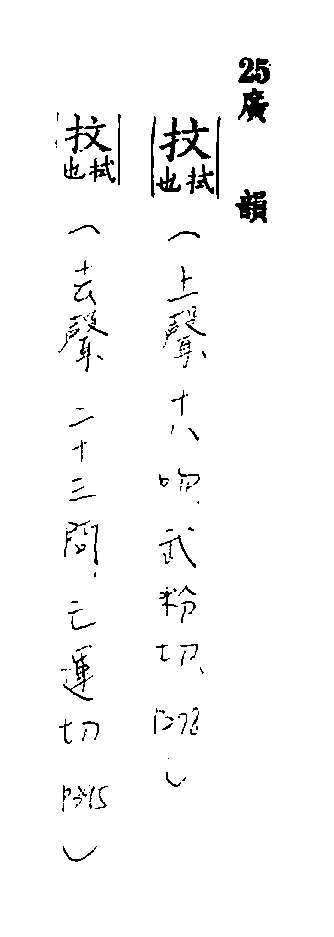 25廣韻
抆拭也（上聲、十八吻、武粉切、P278）
抆拭也（去聲、二十三問、亡運切 P395）